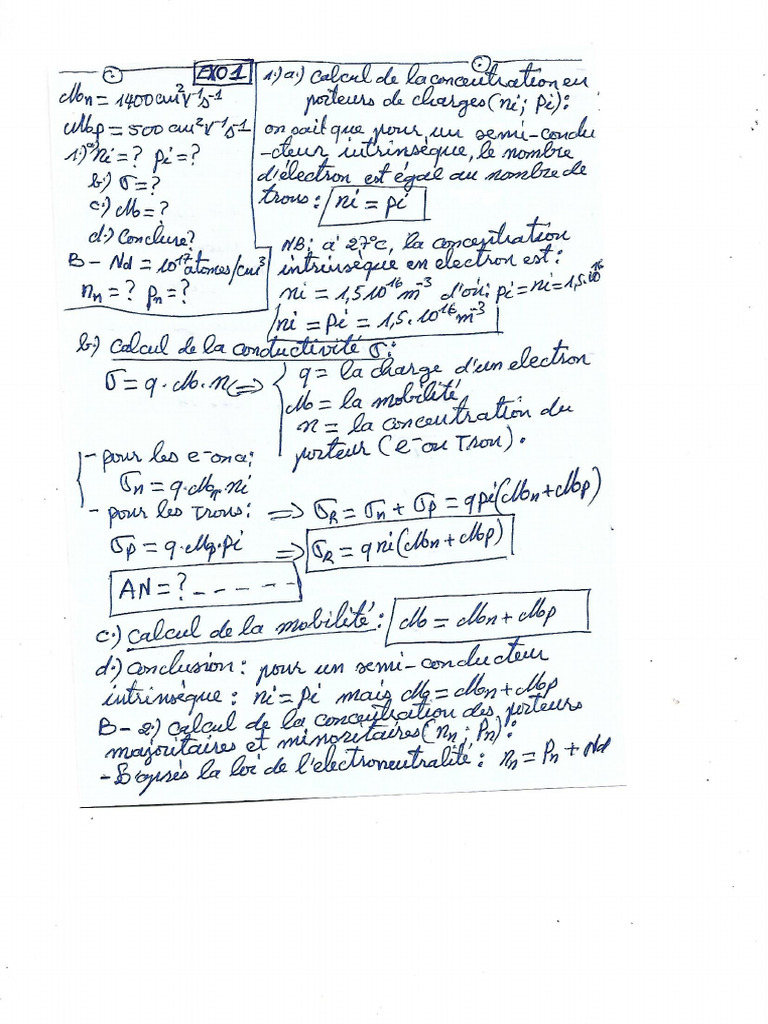 EXO1
μn = 1400cm²V⁻¹s⁻¹
μp = 500 cm²V⁻¹s⁻¹
1.)a) ni = ? pi = ?
b.) σ = ?
c.) μ = ?
d.) Conclure?
B - Nd = 10¹⁷ atomes/cm³
nn = ? pn = ?
1.) a.) Calcul de la concentration en
porteurs de charges (ni; pi):
on sait que pour un semi-condu
-cteur intrinsèque, le nombre
d'électron est égal au nombre de
trous: ni = pi
NB: à 27°c, la concentration
intrinsèque en electron est:
ni = 1,5 10¹⁶ m⁻³ d'où: pi = ni = 1,5.10¹⁶
ni = pi = 1,5.10¹⁶ m⁻³
b.) Calcul de la conductivité σ:
σ = q.μ.n <=> { q = la charge d'un electron
μ = la mobilité
n = la concentration du
porteur (e⁻ ou Trou).
- pour les e⁻ on a:
σn = q.μn.ni
- pour les Trous: => σR = σn + σp = q pi(μn + μp)
σp = q.μp.pi => σR = q ni(μn + μp)
AN = ? - - - - -
c.) calcul de la mobilité: μ = μn + μp
d.) Conclusion: pour un semi-conducteur
intrinsèque: ni = pi mais μ = μn + μp
B - 2.) Calcul de la concentration des porteurs
majoritaires et minoritaires (nn; Pn):
- D'après la loi de l'electroneutralité: nn = Pn + Nd